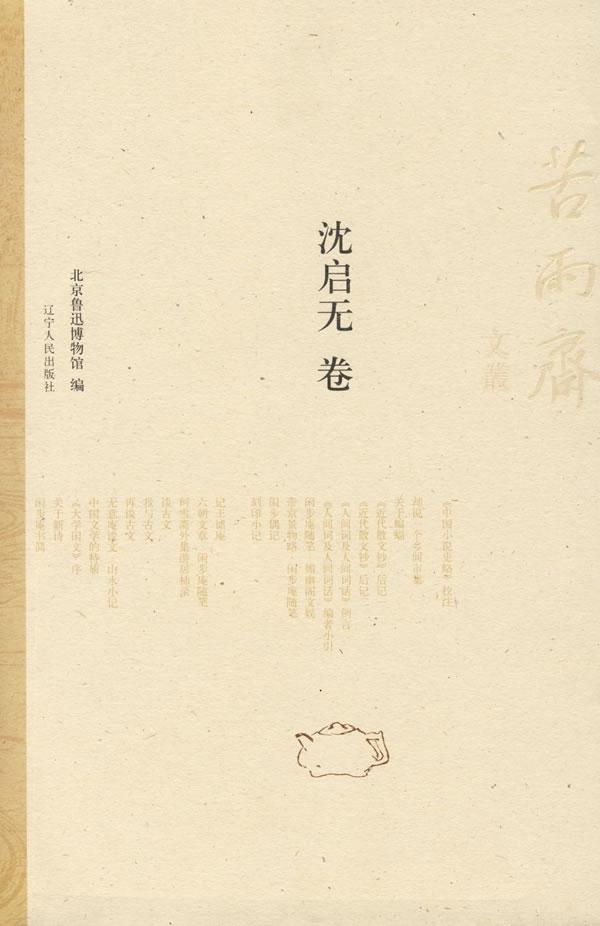 苦雨齋
文叢
沈启无 卷
北京鲁迅博物馆 编
辽宁人民出版社
《中国小说史略》校注
却说一个乡间市集
关于蝙蝠
《近代散文钞》后记
《近代散文钞》后记二
《人间词及人间词话》例言
《人间词及人间词话》编者小引
闲步庵随笔 媚幽阁文娱
帝京景物略 闲步庵随笔
闲步偶记
刻印小记
记王谑庵
六朝文章 闲步庵随笔
何雪斋外集
谈古文
我与古文
再谈古文
无意庵谈文 山水小记
中国文学的特质
《大学国文》序
关于新诗
闲步庵书简